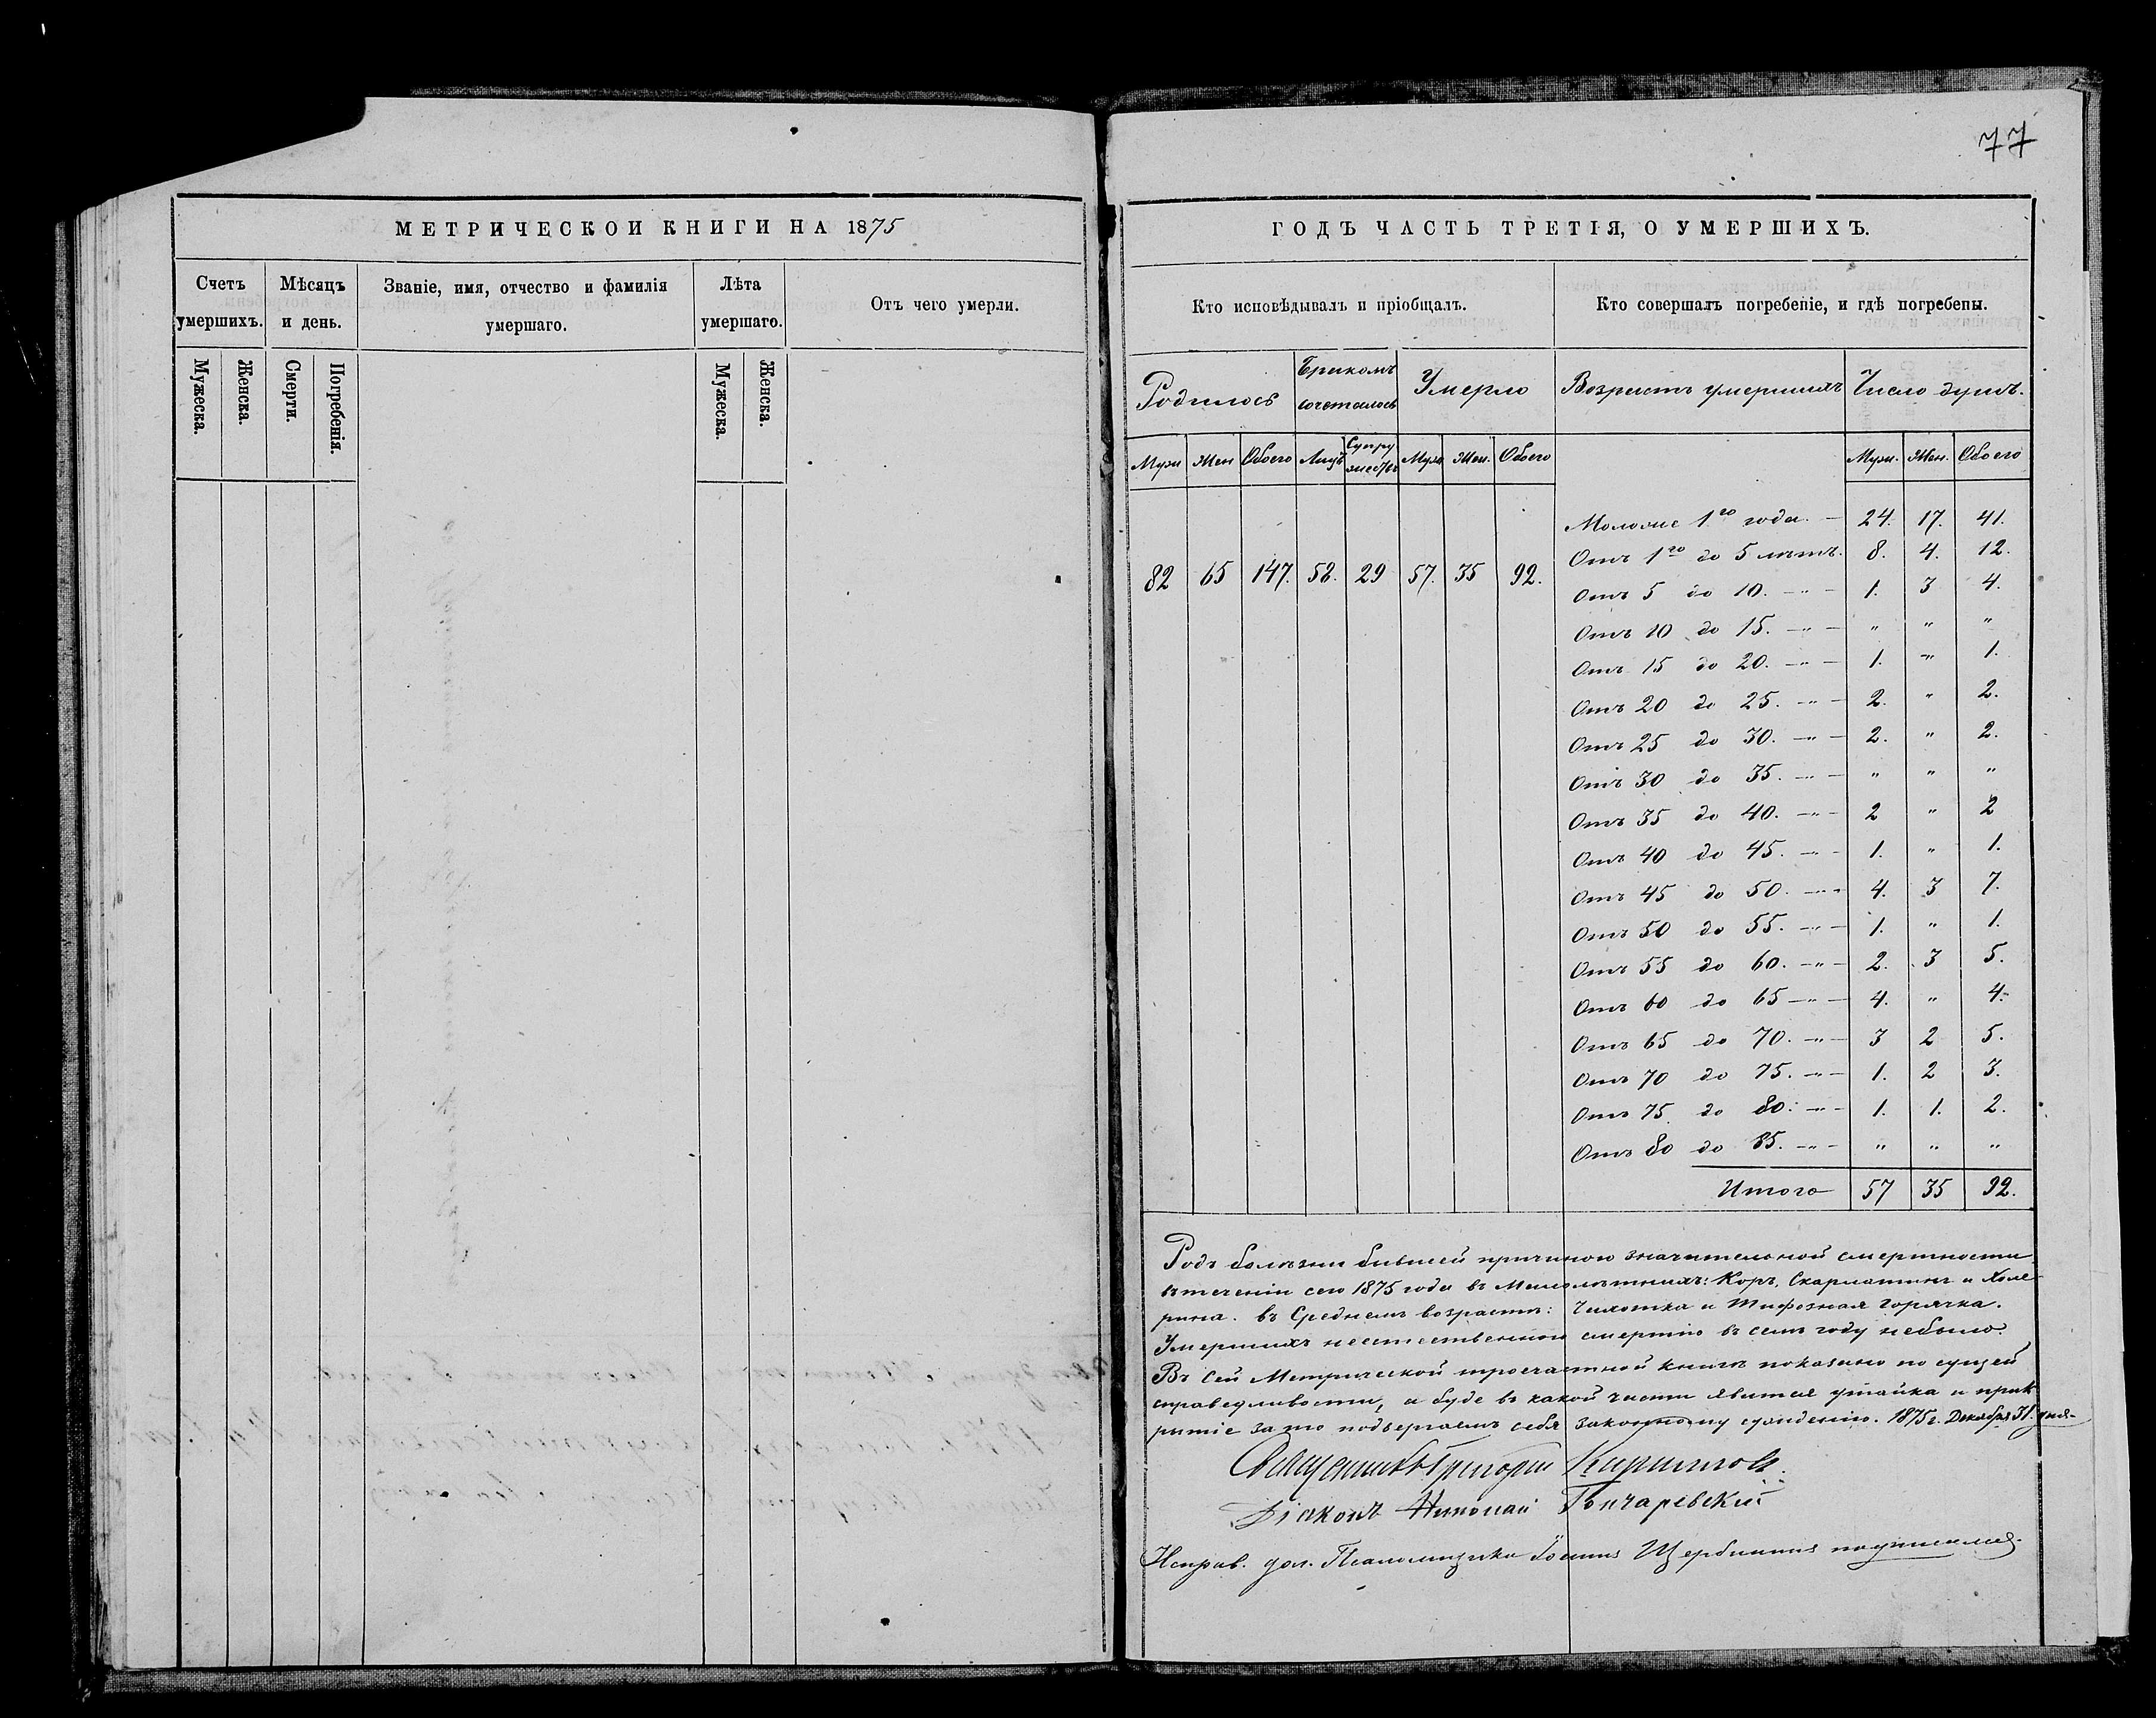 77
МЕТРИЧЕСКОИ КНИГИ НА 1875
Счетъ умершихъ.
Мѣсяцъ и день.
Званіе, имя, отчество и фамилія умершаго.
Лѣта умершаго.
Отъ чего умерли.
Мужеска.
Женска.
Смерти.
Погребенія.
Мужеска.
Женска.
ГОДЪ ЧАСТЬ ТРЕТІЯ, О УМЕРШИХЪ.
Кто исповѣдывалъ и пріобщалъ.
Кто совершалъ погребеніе, и гдѣ погребены.
Родилось
Бракомъ сочеталось
Умерло
Возрастъ умершихъ
Число душъ.
Муж Жен Обоего Лицъ Супружествъ Муж. Жен. Обоего
Муж. Жен. Обоего
82 65 147. 58. 29 57. 35 92.
Моложе 1го года. — 24. 17. 41.
Отъ 1го до 5 лѣтъ. 8. 4. 12.
Отъ 5 до 10. —„— 1. 3 4.
Отъ 10 до 15. —„— „ „ „
Отъ 15 до 20. —„— 1. „ 1.
Отъ 20 до 25. —„— 2. „ 2.
Отъ 25 до 30. —„— 2. „ 2.
Отъ 30 до 35. —„— „ „ „
Отъ 35 до 40. —„— 2 „ 2
Отъ 40 до 45. —„— 1. „ 1.
Отъ 45 до 50. —„— 4. 3 7.
Отъ 50 до 55. —„— 1. „ 1.
Отъ 55 до 60. —„— 2. 3 5.
Отъ 60 до 65 —„— 4. „ 4.
Отъ 65 до 70. —„— 3 2 5.
Отъ 70 до 75. —„— 1. 2 3.
Отъ 75 до 80. —„— 1. 1. 2.
Отъ 80 до 85. —„— „ „ „
Итого 57 35 92.
Родъ болѣзни бывшей причиною значительной смертности
втеченіи сего 1875 года въ Малолѣтнихъ: Коръ, Скарлатинъ и Холе-
рина. въ Среднемъ возрастѣ: Чахотка и Тифозная горячка.
Умершихъ неестественною смертію въ семъ году небыло.
Въ сей Метрической троечастной книгѣ показано по сущей
справедливости, а буде въ какой части явится утайка и прик-
рытіе за то подвергаемъ себя законному сужденію. 1875 г. Декабря 31. дня.
Священникъ Григорій Кириллов
Діаконъ Николай Гончаревскій
Исправ. дол. Псаломщика Іоаннъ Щербининъ подписался.